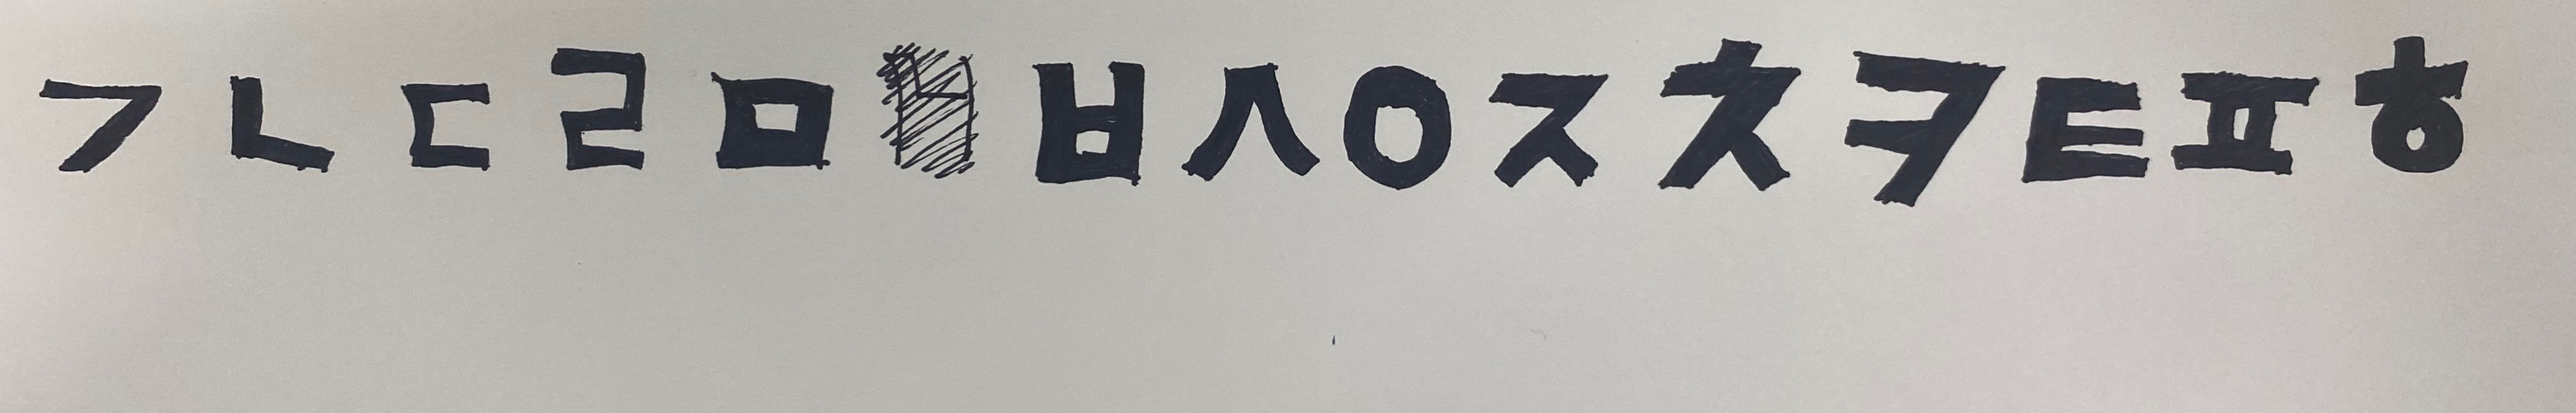 ㄱ ㄴ ㄷ ㄹ ㅁ ㅂ ㅅ ㅇ ㅈ ㅊ ㅋ ㅌ ㅍ ㅎ